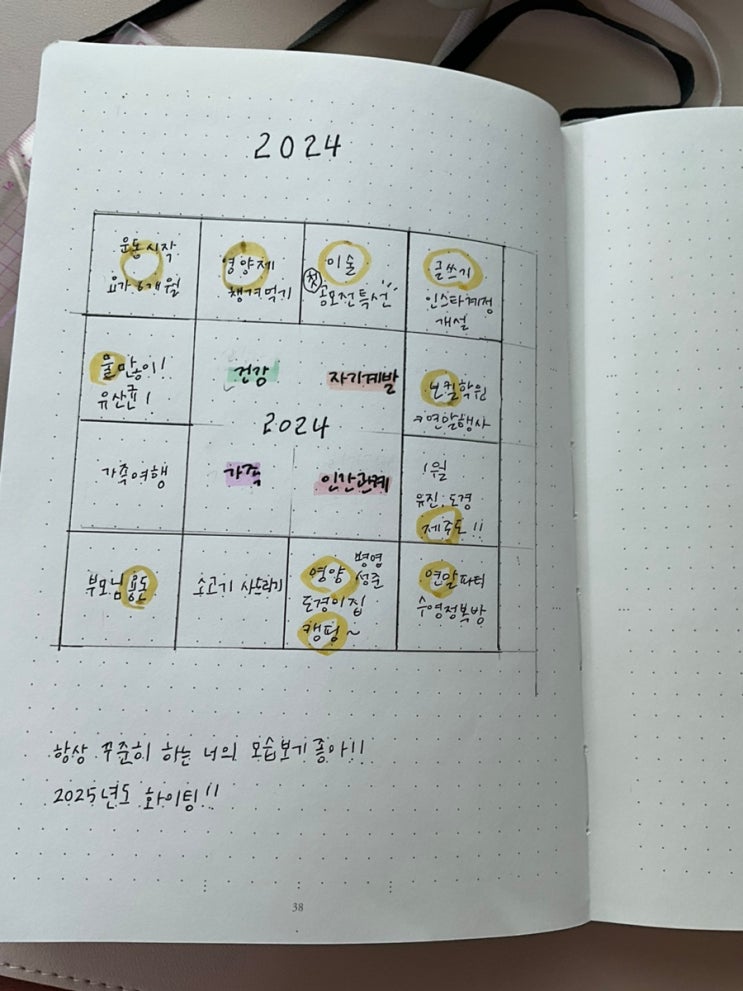 2024
운동시작
요가 6개월
영양제
챙겨먹기
미술
첫 공모전특선
글쓰기
인스타계정
개설
물 많이!
유산균!
건강
자기계발
보컬학원
연말행사
2024
가족여행
가족
인간관계
1월
유진·도경
제주도!!
부모님용돈
소고기 사드리기
영양 병영
성준
도경이집
캠핑~
연말파티
수영정복방
항상 꾸준히 하는 너의 모습보기좋아!!
2025년도 화이팅!!
38